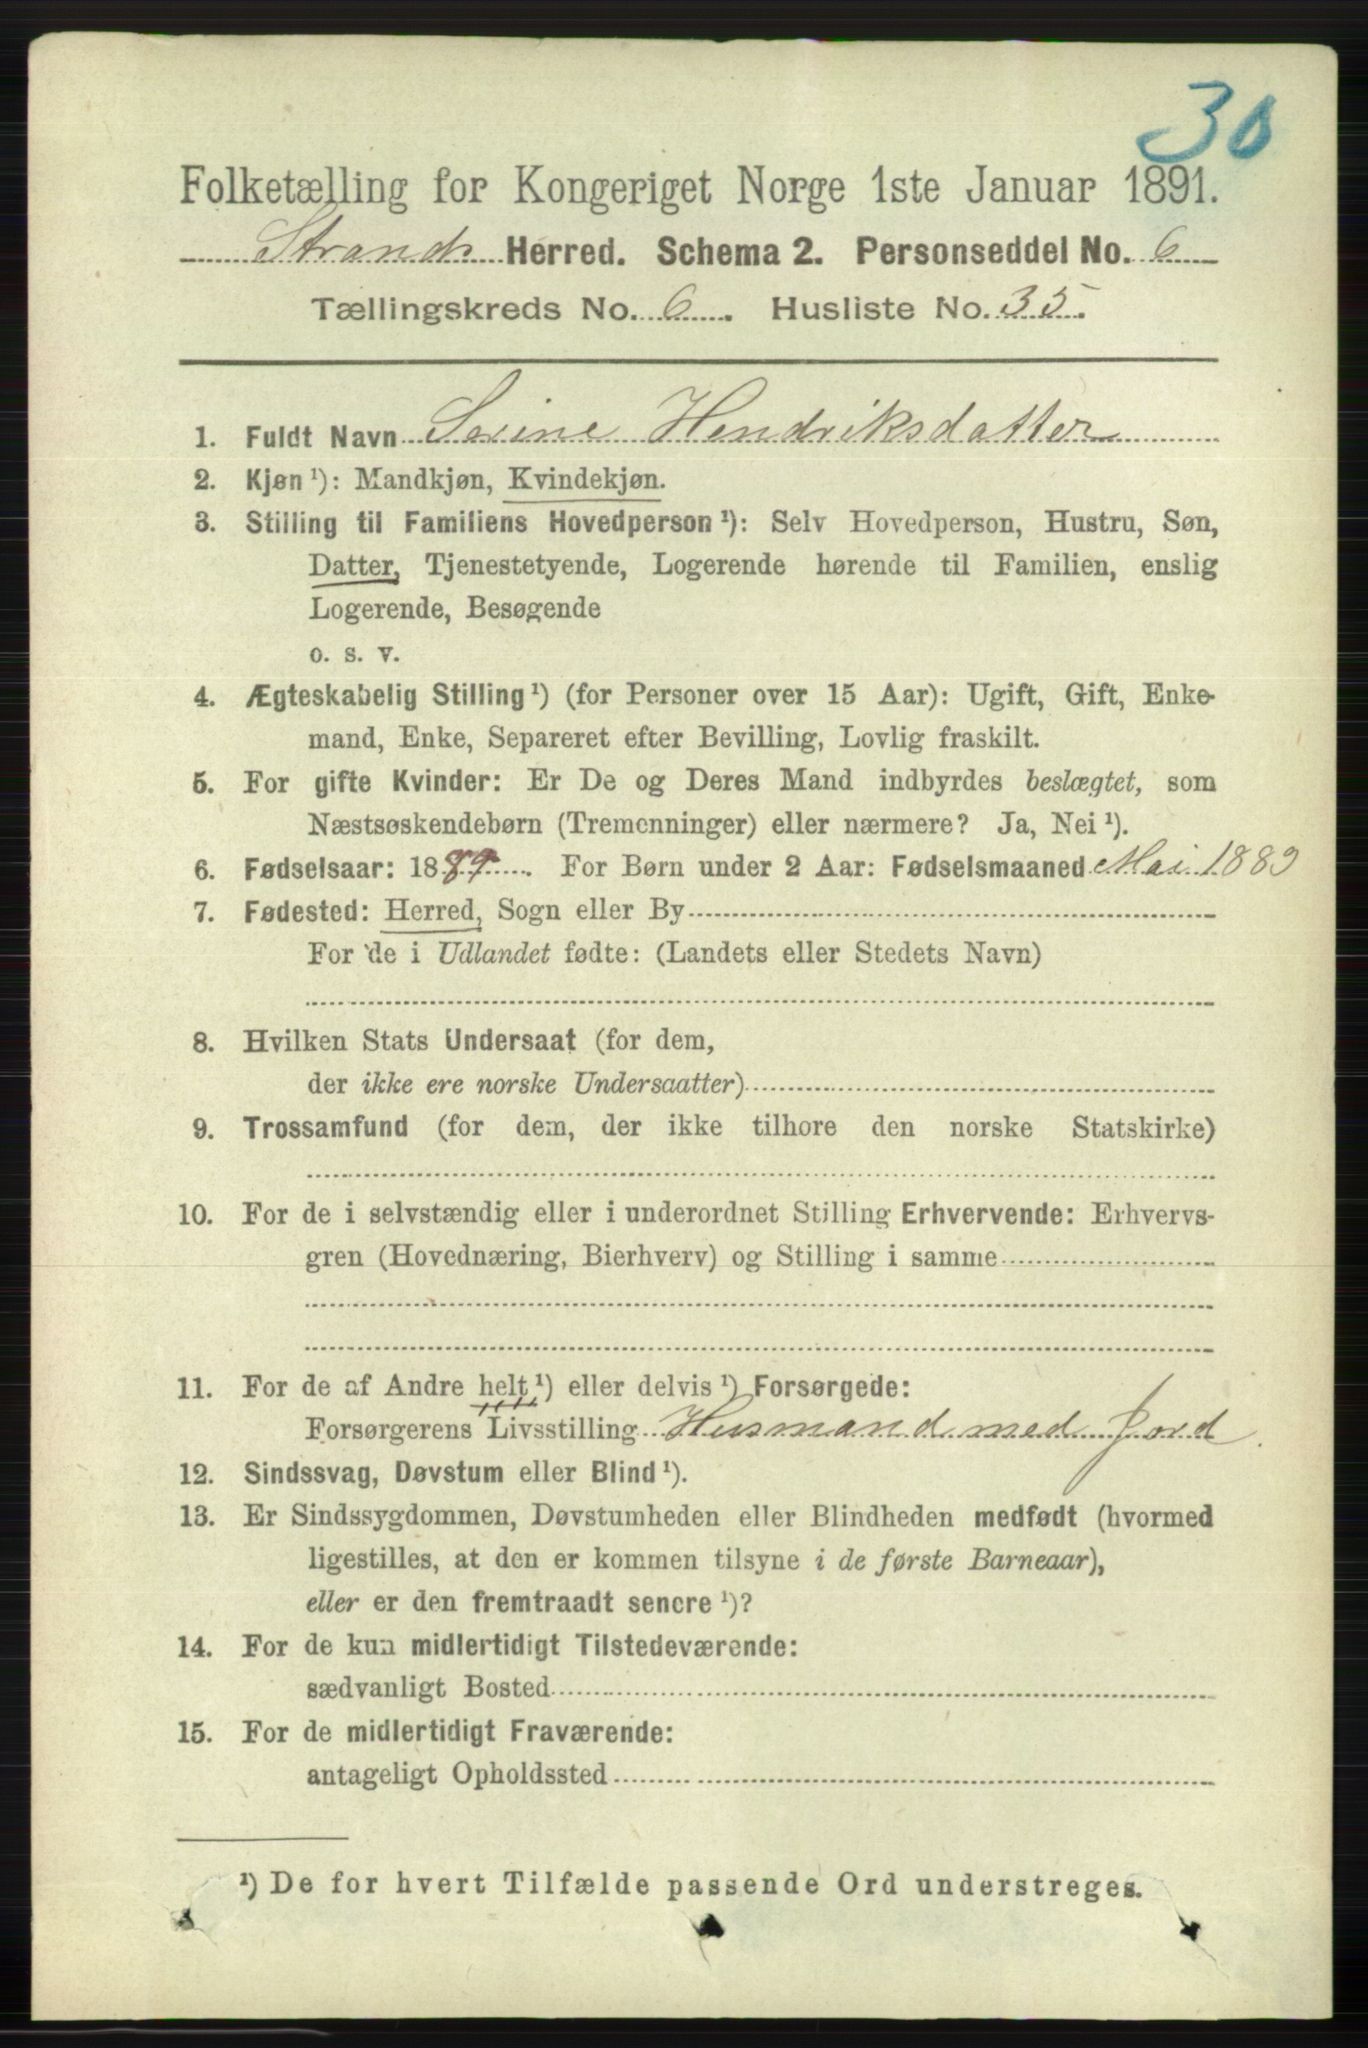 30
Folketælling for Kongeriget Norge 1ste Januar 1891.
Strand Herred. Schema 2. Personseddel No. 6
Tællingskreds No. 6. Husliste No. 35.
1. Fuldt Navn Serine Hendriksdatter
2. Kjøn ¹): Mandkjøn, Kvindekjøn.
3. Stilling til Familiens Hovedperson ¹): Selv Hovedperson, Hustru, Søn,
Datter, Tjenestetyende, Logerende hørende til Familien, enslig
Logerende, Besøgende
o. s. v.
4. Ægteskabelig Stilling ¹) (for Personer over 15 Aar): Ugift, Gift, Enke-
mand, Enke, Separeret efter Bevilling, Lovlig fraskilt.
5. For gifte Kvinder: Er De og Deres Mand indbyrdes beslægtet, som
Næstsøskendebørn (Tremenninger) eller nærmere? Ja, Nei ¹).
6. Fødselsaar: 1889. For Børn under 2 Aar: Fødselsmaaned Mai 1889
7. Fødested: Herred, Sogn eller By
For de i Udlandet fødte: (Landets eller Stedets Navn)
8. Hvilken Stats Undersaat (for dem,
der ikke ere norske Undersaatter)
9. Trossamfund (for dem, der ikke tilhore den norske Statskirke)
10. For de i selvstændig eller i underordnet Stilling Erhvervende: Erhvervs-
gren (Hovednæring, Bierhverv) og Stilling i samme
11. For de af Andre helt ¹) eller delvis ¹) Forsørgede:
Forsørgerens Livsstilling Husmand med Jord
12. Sindssvag, Døvstum eller Blind ¹).
13. Er Sindssygdommen, Døvstumheden eller Blindheden medfødt (hvormed
ligestilles, at den er kommen tilsyne i de første Barneaar),
eller er den fremtraadt senere ¹)?
14. For de kun midlertidigt Tilstedeværende:
sædvanligt Bosted
15. For de midlertidigt Fraværende:
antageligt Opholdssted
¹) De for hvert Tilfælde passende Ord understreges.